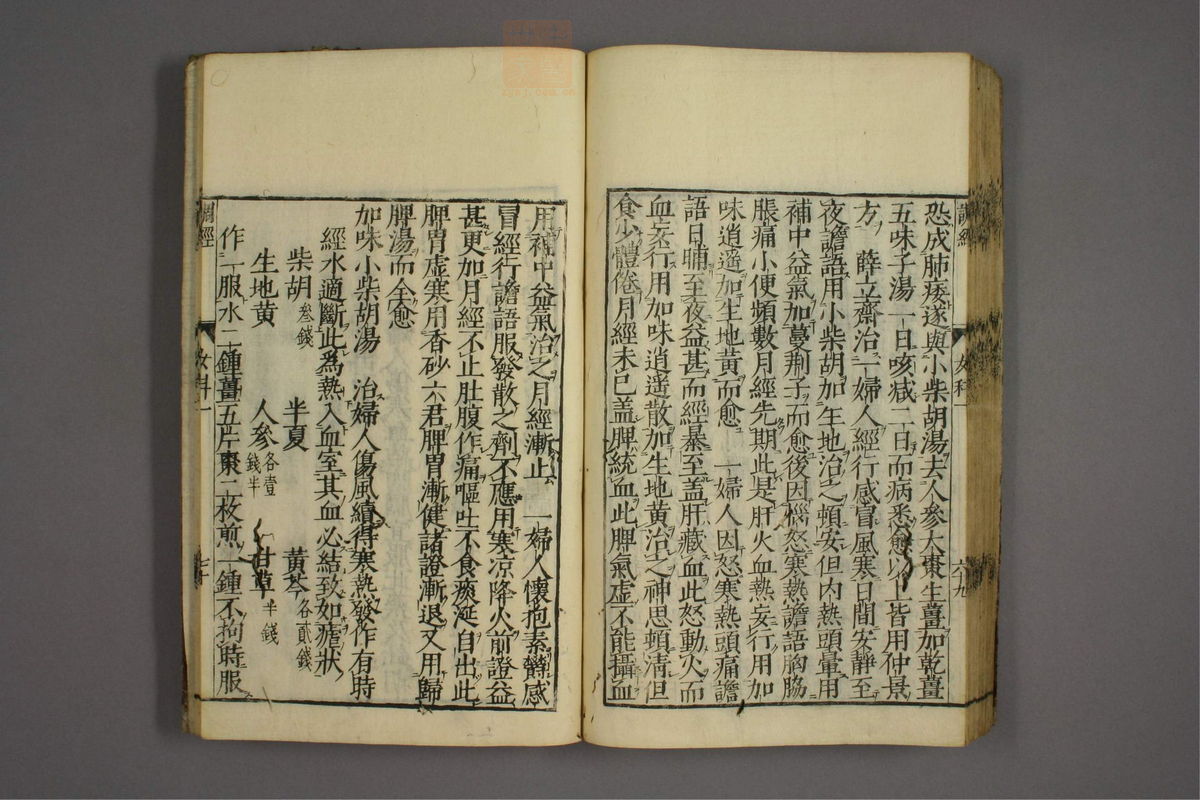 恐成肺痿遂與小柴胡湯去人參大棗生薑加乾薑
五味子湯一日咳減二日而病悉愈以上皆用仲景
方 薛立齋治一婦人經行感冒風寒日間安靜至
夜譫語用小柴胡加生地治之頓安但内熱頭暈用
補中益氣加蔓荆子而愈後因怒寒熱譫語胸脇
脹痛小便頻數月經先期此是肝火血熱妄行用加
味逍遙加生地黄而愈 一婦人因怒寒熱頭痛譫
語日晡至夜益甚而經暴至盖肝藏血此怒動火而
血妄行用加味逍遙散加生地黄治之神思頓清但
食少體倦月經未已盖脾統血此脾氣虚不能攝血
調經
女科一
六十九
用補中益氣治之月經漸止 一婦人懷抱素欝感
冒經行譫語服發散之劑不應用寒凉降火前證益
甚更加月經不止肚腹作痛嘔吐不食痰涎自出此
脾胃虚寒用香砂六君脾胃漸健諸證漸退又用歸
脾湯而全愈
加味小柴胡湯 治婦人傷風續得寒熱發作有時
經水適斷此爲熱入血室其血必結致如瘧狀
柴胡叁錢 半夏 黄芩各貳錢
生地黄 人參各壹錢半 甘草半錢
作一服水二鍾薑五片棗二枚煎一鍾不拘時服
調經
女科一
七十